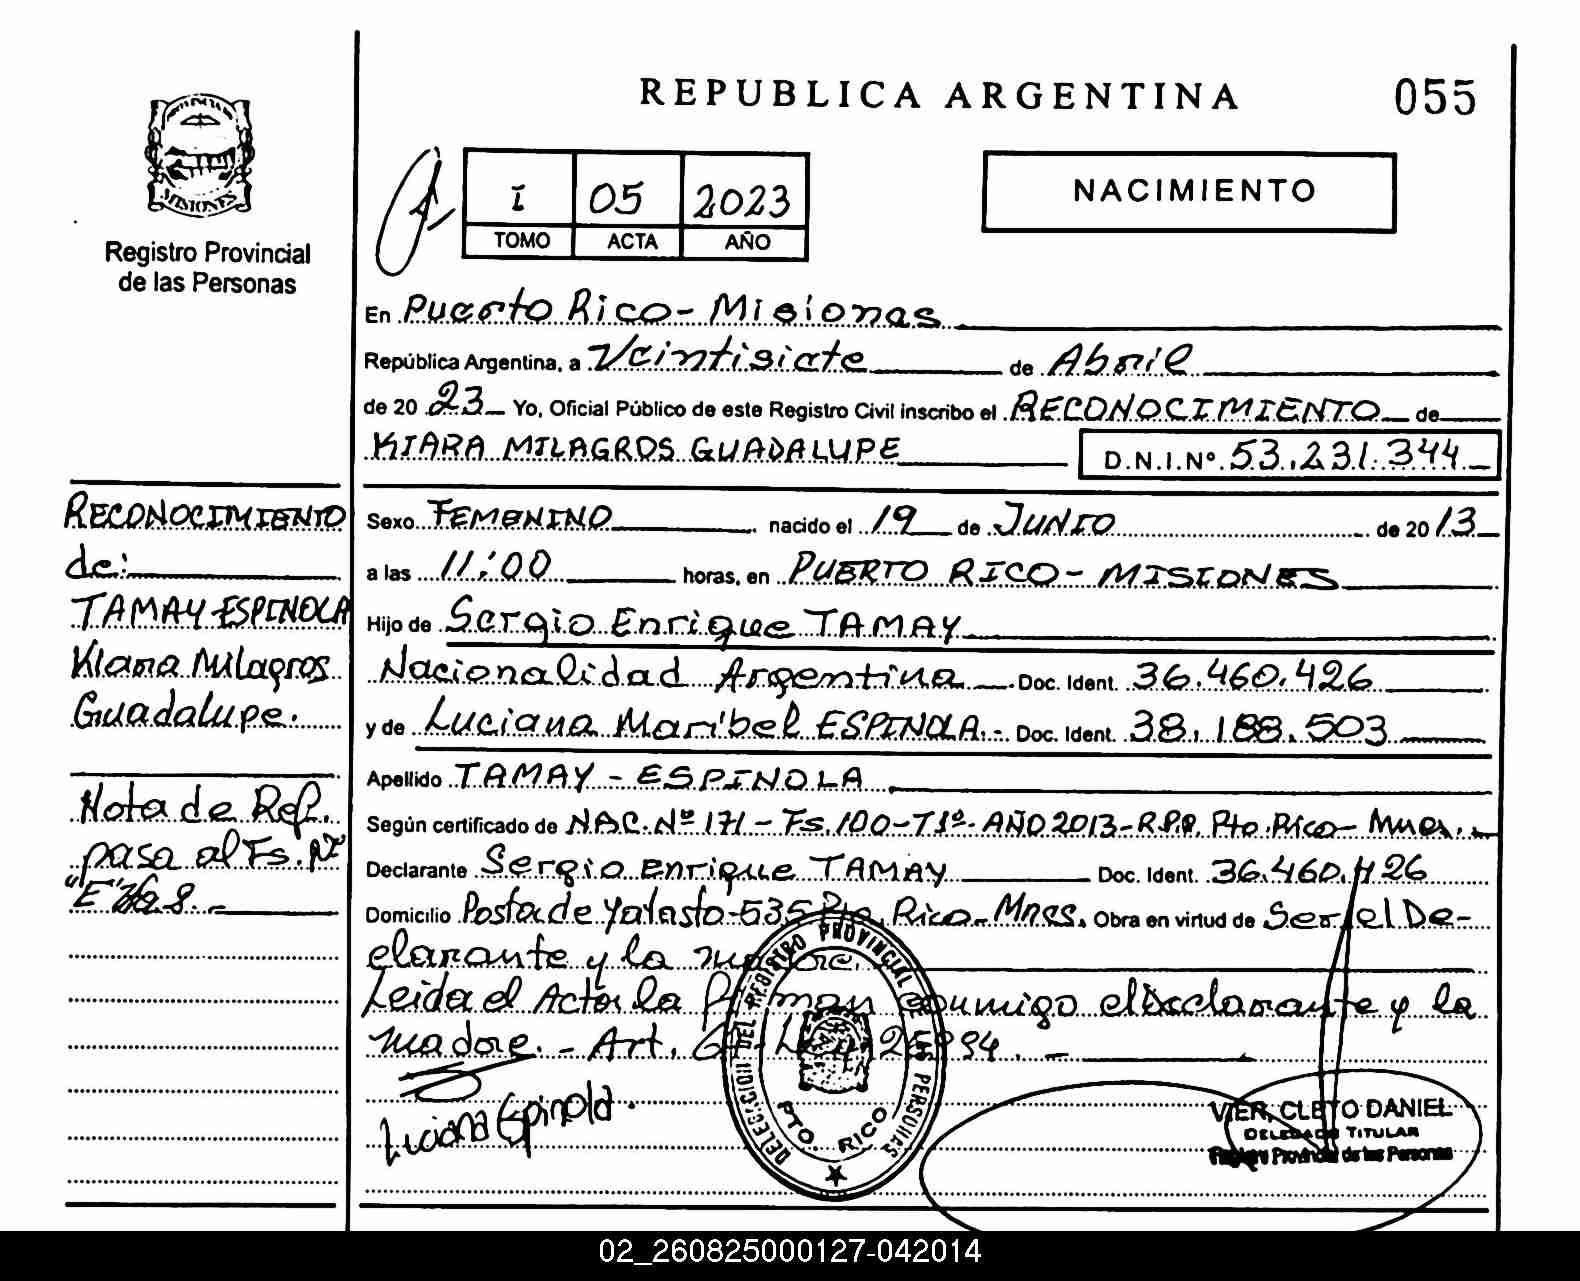 REPUBLICA ARGENTINA
055
MISIONES
Registro Provincial
de las Personas
I 05 2023
TOMO ACTA AÑO
NACIMIENTO
En Puerto Rico - Misiones
República Argentina, a Veintisiete de Abril
de 20 23 Yo, Oficial Público de este Registro Civil inscribo el RECONOCIMIENTO de
KIARA MILAGROS GUADALUPE D.N.I.Nº 53.231.344
Sexo FEMENINO nacido el 19 de JUNIO de 20 13
a las 11:00 horas, en PUERTO RICO - MISIONES
Hijo de Sergio Enrique TAMAY
Nacionalidad Argentina Doc. Ident. 36.460.426
y de Luciana Maribel ESPINOLA.- Doc. Ident. 38.188.503
Apellido TAMAY - ESPINOLA
Según certificado de NAC. Nº 171 - Fs. 100 - T1º - AÑO 2013 - R.P.P. Pto. Rico -
Declarante Sergio Enrique TAMAY Doc. Ident. 36.460.426
Domicilio Posta de Yatasto - 535 Pto. Rico - Mnes. Obra en virtud de Ser el De-
clarante y la madre.
Leida el Acta la Firman conmigo el Declarante y la
madre. - Art. Ley 26994. -
Luciana Espinola.
DELEGACION DEL REGISTRO PROVINCIAL DE LAS PERSONAS
PTO. RICO
VIER, CLETO DANIEL
DELEGADO TITULAR
Registro Provincial de las Personas
RECONOCIMIENTO
de:
TAMAY ESPINOLA
Kiara Milagros
Guadalupe.
Nota de Ref.
pasa al Fs. Nº
"E"
02_260825000127-042014